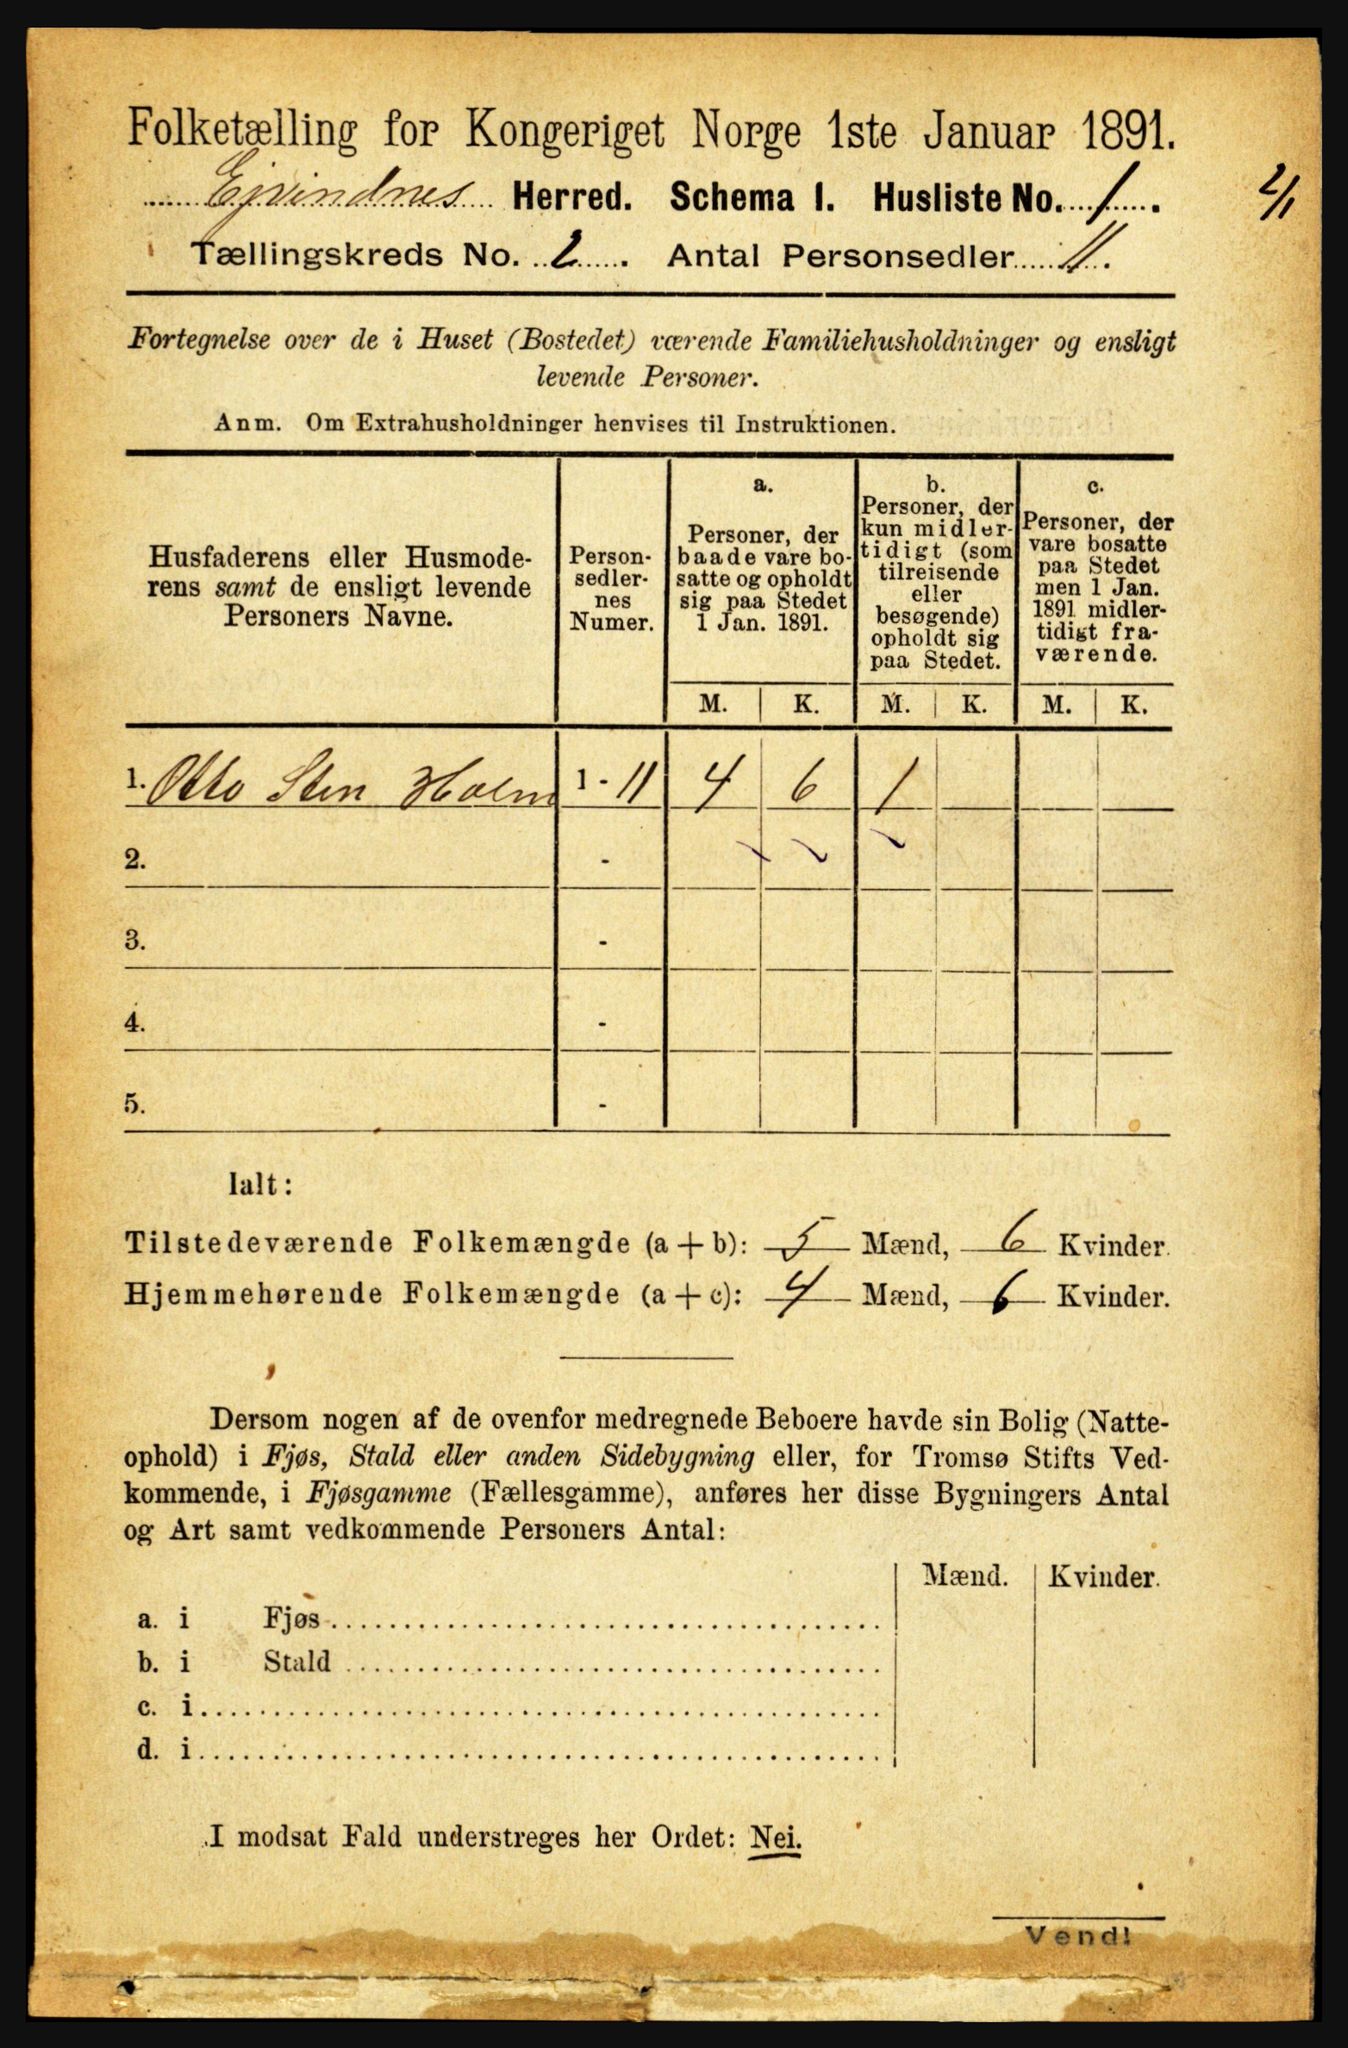 Folketælling for Kongeriget Norge 1ste Januar 1891.
Ejvindnes Herred. Schema I. Husliste No. 1.
2/1
Tællingskreds No. 2. Antal Personsedler 11.
Fortegnelse over de i Huset (Bostedet) værende Familiehusholdninger og ensligt
levende Personer.
Anm. Om Extrahusholdninger henvises til Instruktionen.
Husfaderens eller Husmode-
rens samt de ensligt levende
Personers Navne.
Person-
sedler-
nes
Numer.
a.
Personer, der
baade vare bo-
satte og opholdt
sig paa Stedet
1 Jan. 1891.
b.
Personer, der
kun midler-
tidigt (som
tilreisende
eller
besøgende)
opholdt sig
paa Stedet.
c.
Personer, der
vare bosatte
paa Stedet
men 1 Jan.
1891 midler-
tidigt fra-
værende.
M. K. M. K. M. K.
1. Otto Sten Holm 1 - 11 4 6 1
2. -
3. -
4. -
5. -
Ialt:
Tilstedeværende Folkemængde (a + b): 5 Mænd, 6 Kvinder.
Hjemmehørende Folkemængde (a + c): 4 Mænd, 6 Kvinder.
Dersom nogen af de ovenfor medregnede Beboere havde sin Bolig (Natte-
ophold) i Fjøs, Stald eller anden Sidebygning eller, for Tromsø Stifts Ved-
kommende, i Fjøsgamme (Fællesgamme), anføres her disse Bygningers Antal
og Art samt vedkommende Personers Antal:
Mænd. Kvinder.
a. i Fjøs
b. i Stald
c. i
d. i
I modsat Fald understreges her Ordet: Nei.
Vend!